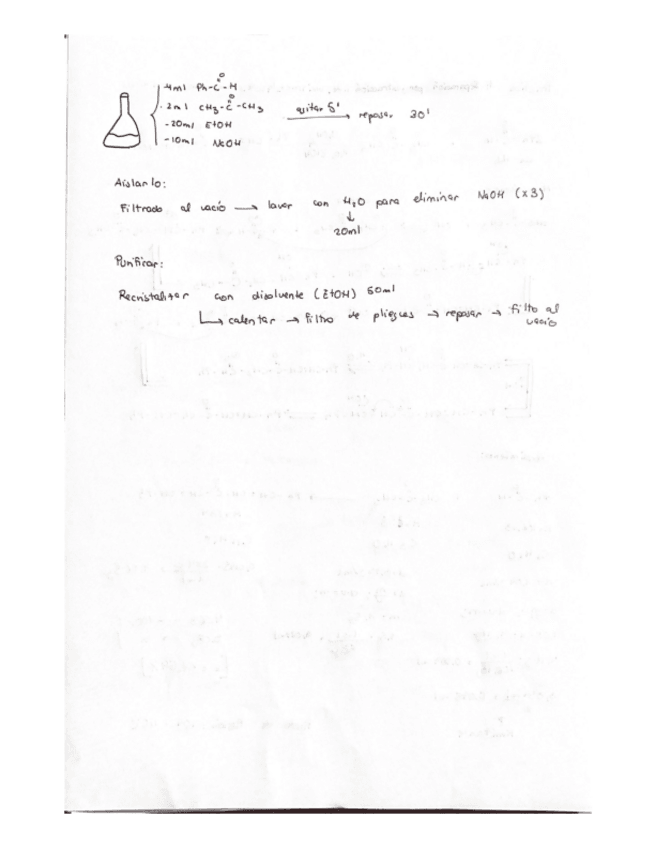 -4ml Ph-C-H
O
-2ml CH3-C-CH3
O
-20ml EtOH
-10ml NaOH
5'
reposar 30'
Aislarlo:
Filtrado al vacío → lavar con H2O para eliminar NaOH (x3)
↓
20ml
Purificar:
Recristalizar con disolvente (EtOH) 50ml
↳ calentar → filtro de pliegues → reposar → filtro al
vacío